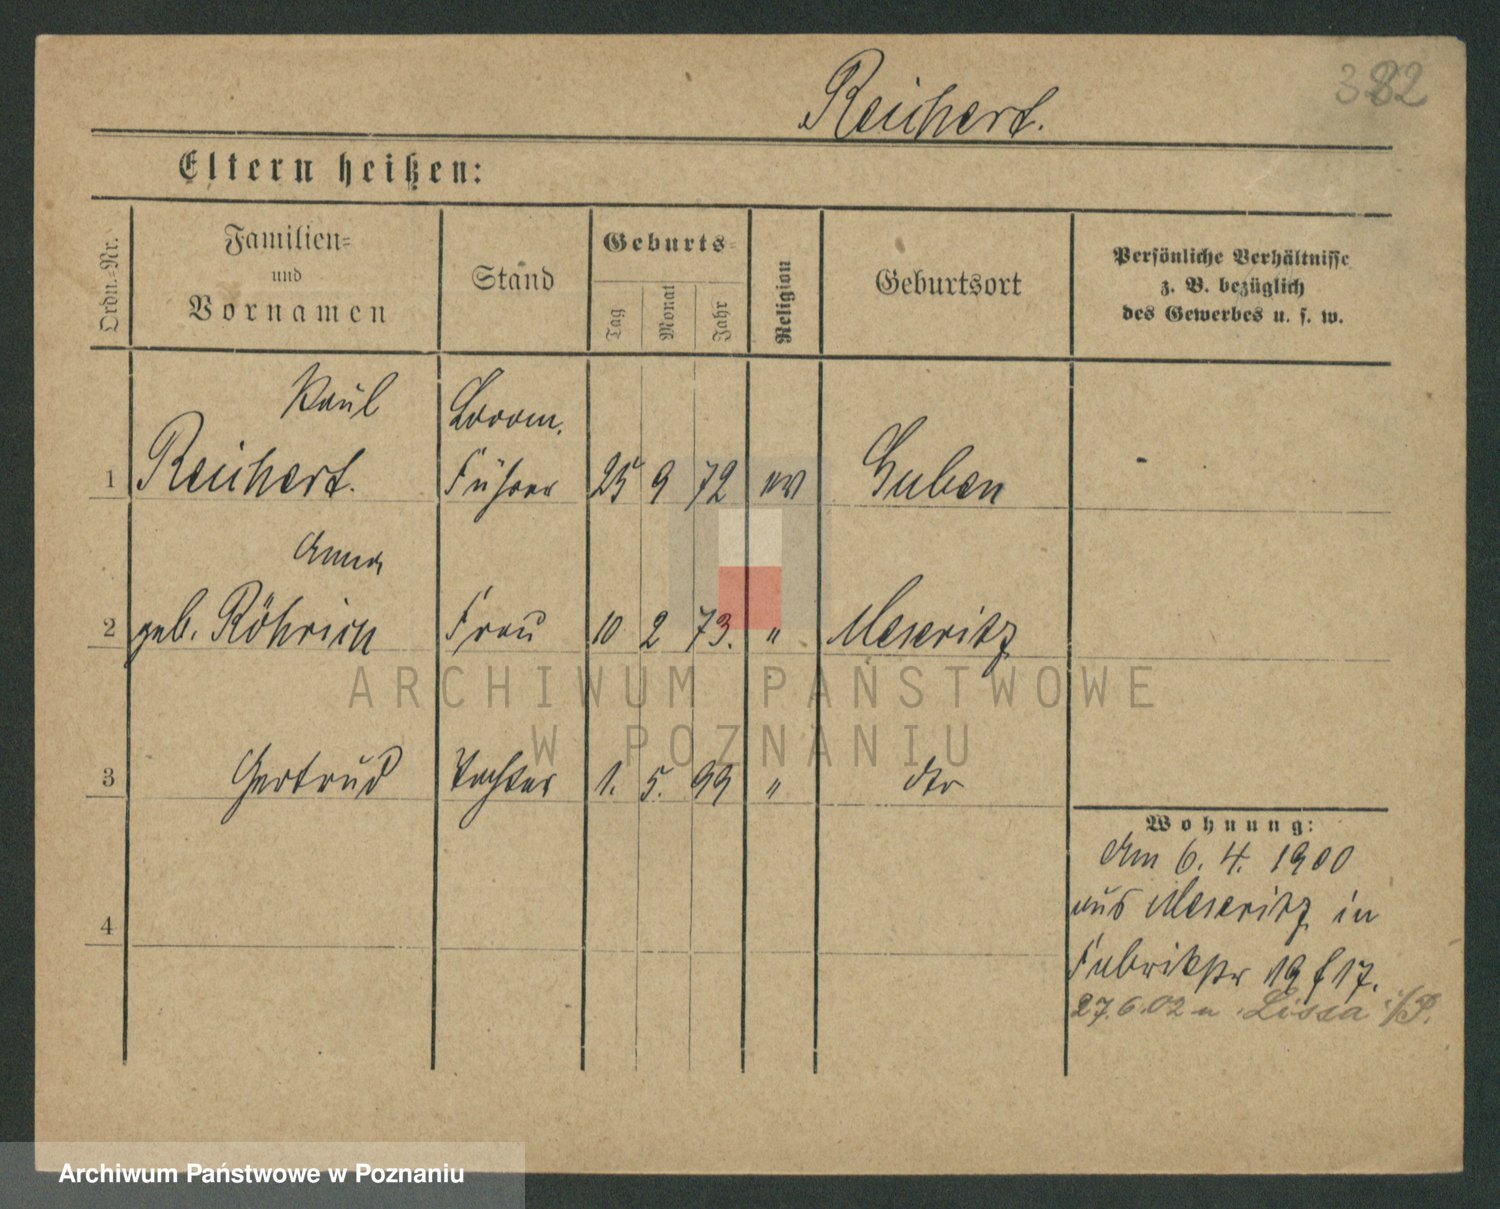 Reichert.
382
Eltern heißen:
Ordn.-Nr.
Familien-
und
Vornamen
Stand
Geburts-
Tag
Monat
Jahr
Religion
Geburtsort
Persönliche Verhältnisse
z. B. bezüglich
des Gewerbes u. s. w.
Paul Locom.
1 Reichert. Führer 25 9 72 ev Guben -
Anna
2 geb. Röhrich Frau 10 2 73. " Meseritz
ARCHIWUM PAŃSTWOWE
W POZNANIU
3 Gertrud Tochter 1. 5. 99 " dto
Wohnung:
Am 6. 4. 1900
aus Meseritz in
4
Fabrikstr 19 f 17.
27.6.02 n. Lissa i/P.
Archiwum Państwowe w Poznaniu